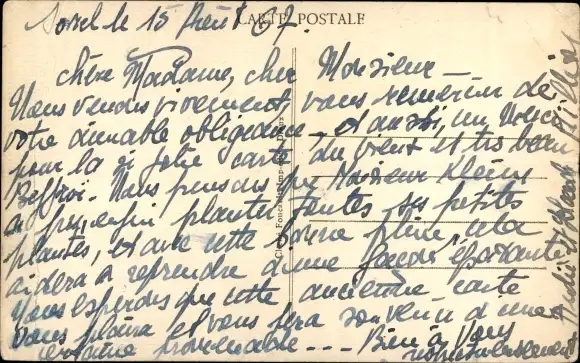 le 15 Août 67.
CARTE POSTALE
Chère Madame, cher Monsieur –
Nous venons vivement, vous remercier de
votre aimable obligeance, et aussi, un merci
pour la si jolie carte, du vieux et très beau
Beffroi. Nous pensons que Monsieur
a pu, enfin planter toutes ses petites
plantes, et avec cette bonne pluie, cela
aidera à reprendre d'une façon épatante
Nous espérons que cette ancienne carte
vous plaira et vous fera souvenir d'une
certaine promenade --- Bien à Vous
André et